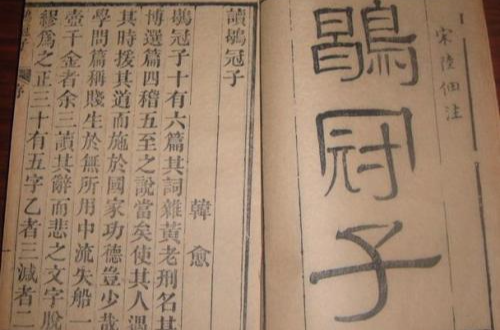 宋陸佃注
鶡冠子
讀鶡冠子
韓愈
鶡冠子十有六篇其詞雜黃老刑名其
博選篇四稽五至之說當矣使其人遇
其時援其道而施於國家功德豈少哉
學問篇稱賤生於無所用中流失船一
壺千金者余三讀其辭而悲之文字脫
繆爲之正三十有五字乙者三減者二
冠子 序